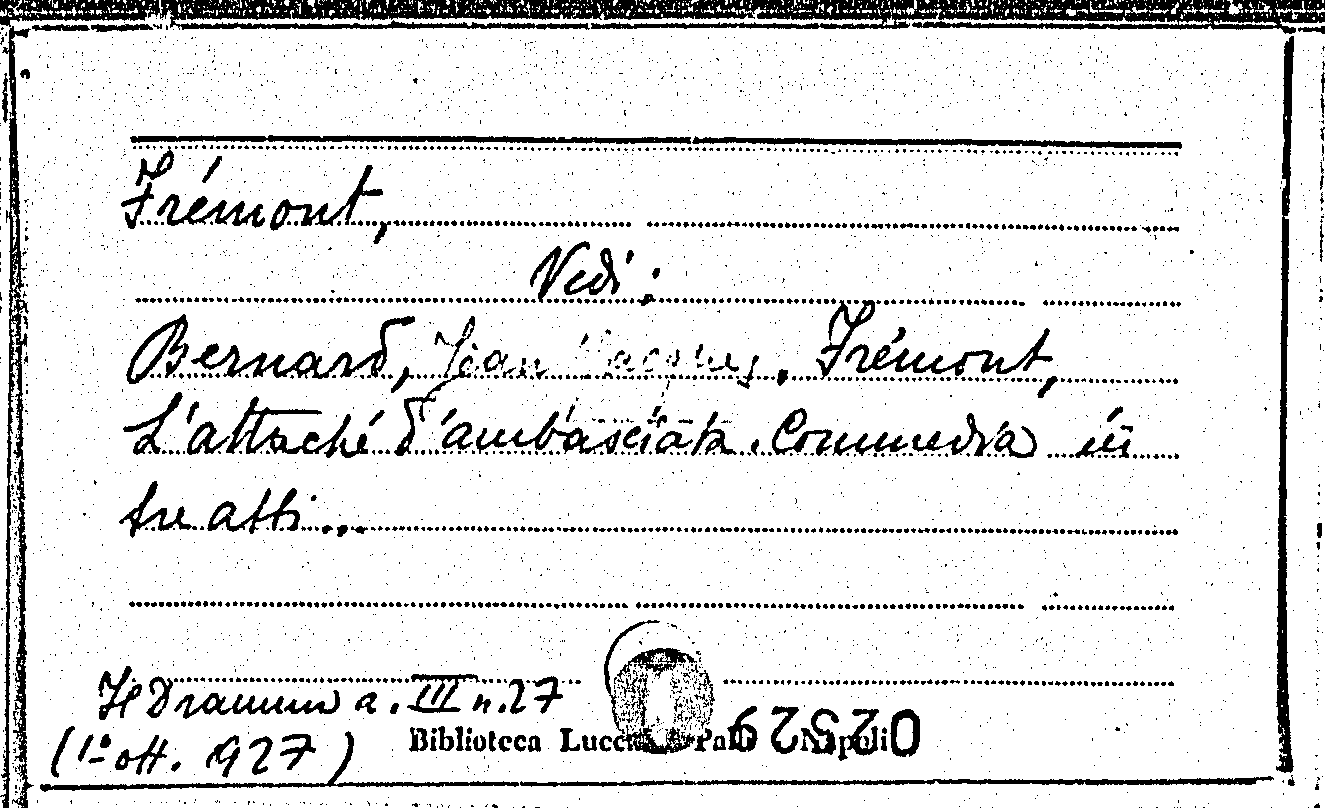 Frémont,
Vedi:
Bernard, Jean Jacques. Frémont,
L'attaché d'ambasciata. Commedia in
tre atti...
Il Dramma a. III n. 27
(1° ott. 927)
Biblioteca Napoli